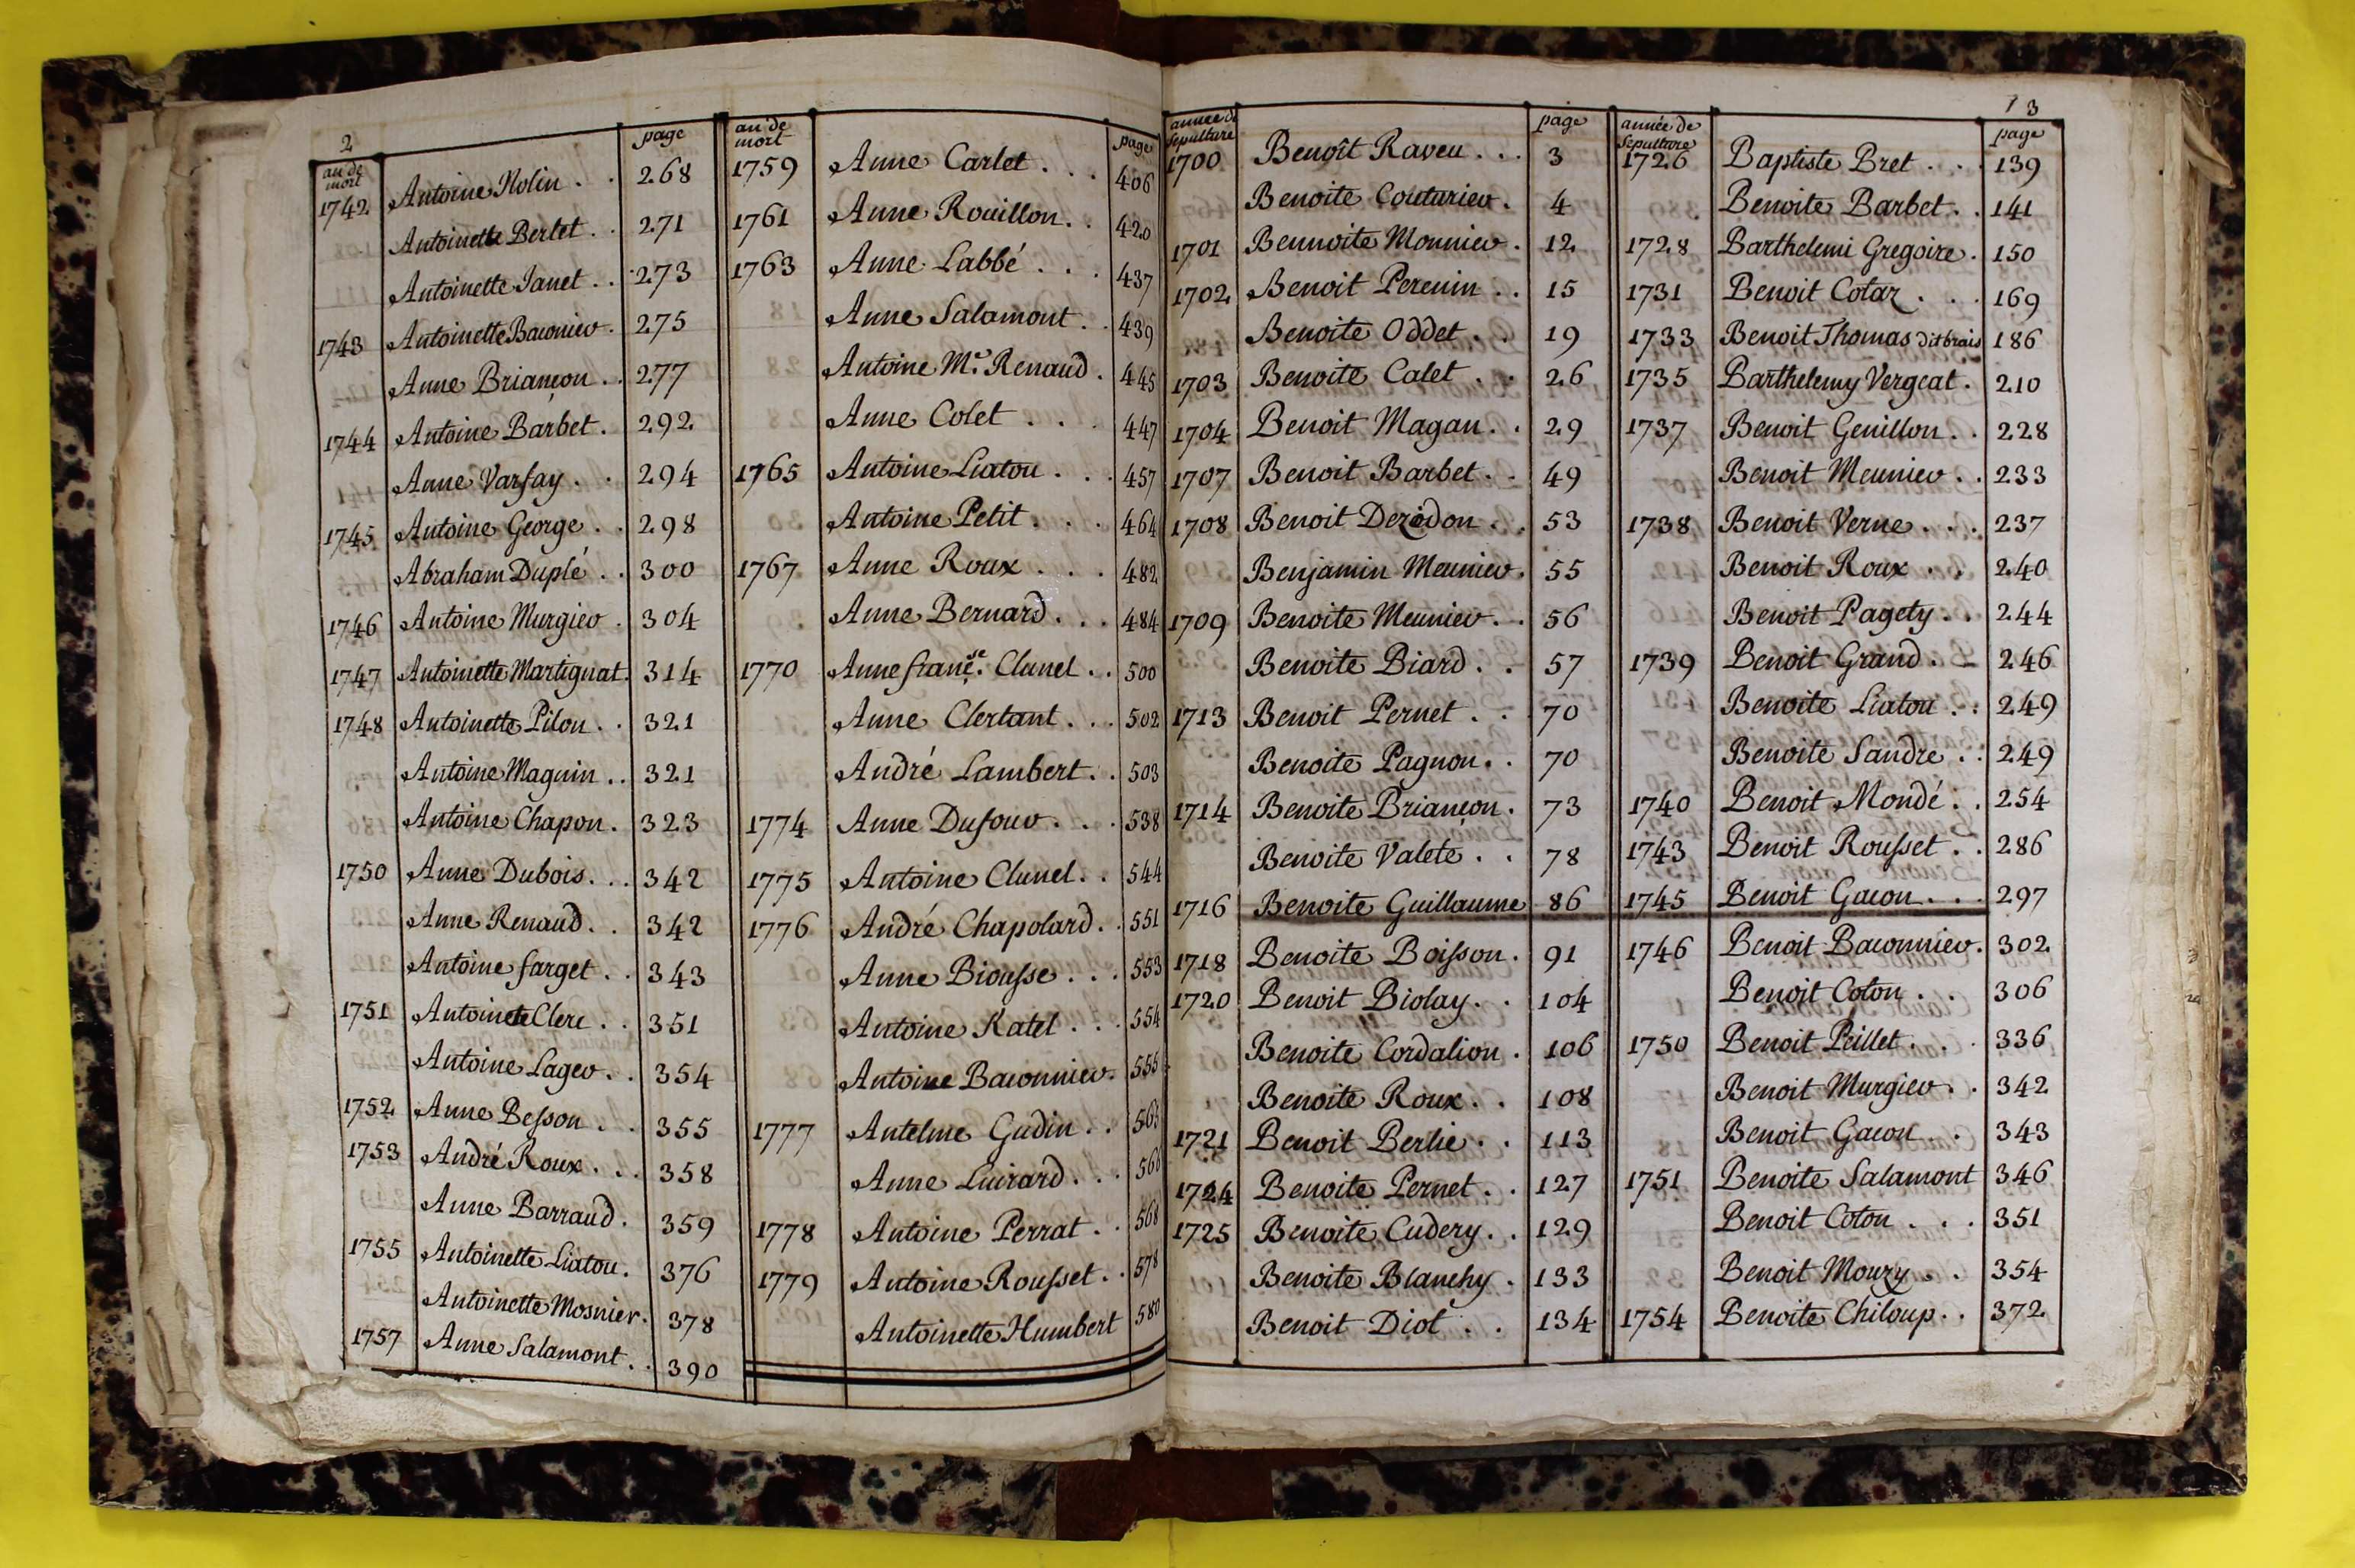 2
an de mort page
1742 Antoine Nolin . . 268
Antoinette Berlet . . 271
Antoinette Janet . . 273
1743 Antoinette Baconier . 275
Anne Briançon . . 277
1744 Antoine Barbet . 292
Anne Varsay . . 294
1745 Antoine George . . 298
Abraham Duplé . . 300
1746 Antoine Murgier . 304
1747 Antoinette Martignat . 314
1748 Antoinette Pilon . . 321
Antoine Magnin . . 321
Antoine Chapon . 323
1750 Anne Dubois . . . 342
Anne Renaud . . 342
Antoine farget . . 343
1751 Antoinete Clerc . . 351
Antoine Lager . . 354
1752 Anne Besson . . 355
1753 André Roux . . . 358
Anne Barraud . 359
1755 Antoinette Liatou . 376
Antoinette Mosnier . 378
1757 Anne Salamont . . 390
an de mort page
1759 Anne Carlet . . . 406
1761 Anne Rouillon . . 420
1763 Anne Labbé . . . 437
Anne Salamont . . 439
Antoine Me. Renaud . 445
Anne Colet . . . 447
1765 Antoine Liatou . . . 457
Antoine Petit . . . 464
1767 Anne Roux . . . 482
Anne Bernard . . . 484
1770 Anne françse. Clunel . . 500
Anne Clertant . . . 502
André Lambert . . 503
1774 Anne Dufour . . . 538
1775 Antoine Clunel . . 544
1776 André Chapolard . . 551
Anne Biousse . . . 553
Antoine Ratel . . . 554
Antoine Baconnier . 555
1777 Antelme Gudin . .
Anne Luirard . . .
1778 Antoine Perrat . . 568
1779 Antoine Rousset . . 578
Antoinette Humbert 580
3
année de sepulture page
1700 Benoît Raveu . . . 3
Benoite Couturier . 4
1701 Bennoite Monnier . 12
1702 Benoit Perenin . . 15
Benoite Oddet . . 19
1703 Benoite Calet . . 26
1704 Benoit Magan . . 29
1707 Benoit Barbet . . 49
1708 Benoit Dezedon . . 53
Benjamin Meunier . 55
1709 Benoite Meunier . . 56
Benoite Biard . . 57
1713 Benoit Pernet . . 70
Benoite Pagnon . . 70
1714 Benoite Briançon . 73
Benoite Valete . . 78
1716 Benoite Guillaume 86
1718 Benoite Boisson . 91
1720 Benoit Biolay . . 104
Benoite Cordalion . 106
Benoite Roux . . 108
1721 Benoit Berlie . . 113
1724 Benoite Pernet . . 127
1725 Benoite Cudery . . 129
Benoite Blanchy . 133
Benoit Diot . . 134
année de sepulture page
1726 Baptiste Bret . . . 139
Benoite Barbet . . 141
1728 Barthelemi Gregoire . 150
1731 Benoit Cotar . . . 169
1733 Benoit Thomas dit brais 186
1735 Barthelemy Vergeat . 210
1737 Benoit Genillon . . 228
Benoit Meunier . . 233
1738 Benoit Verne . . . 237
Benoit Roux . . 240
Benoit Pagety . . 244
1739 Benoit Grand . . 246
Benoite Liatou . . 249
Benoite Sandre . . 249
1740 Benoit Mondé . . 254
1743 Benoit Rousset . . 286
1745 Benoit Gacon . . . 297
1746 Benoit Baconnier . 302
Benoit Coton . . 306
1750 Benoit Peillet . . . 336
Benoit Murgier . . 342
Benoit Gacon . . 343
1751 Benoite Salamont 346
Benoit Coton . . . 351
Benoit Mouzy . . 354
1754 Benoite Chiloup . . 372